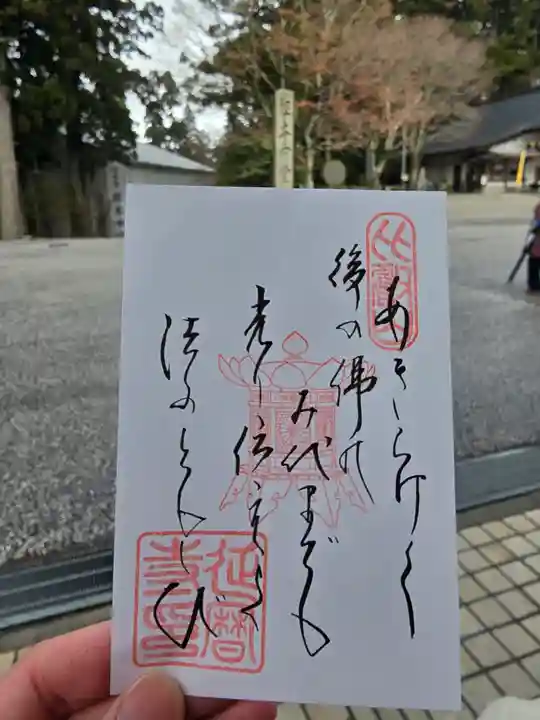 比叡山
あきらけく
後の佛の
み代までも
光り伝へよ
法のともしび
延暦
寺印